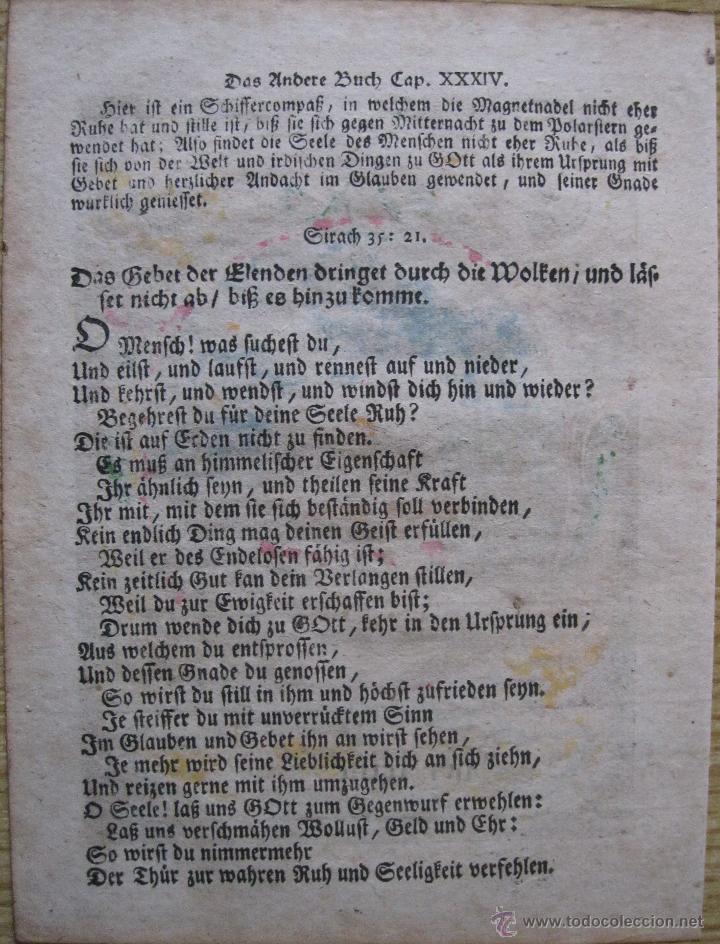 Das Andere Buch Cap. XXXIV.
Hier ist ein Schiffercompaß, in welchem die Magnetnadel nicht eher
Ruhe hat und stille ist, biß sie sich gegen Mitternacht zu dem Polarstern ge-
wendet hat; Also findet die Seele des Menschen nicht eher Ruhe, als biß
sie sich von der Welt und irdischen Dingen zu GOtt als ihrem Ursprung mit
Gebet und herzlicher Andacht im Glauben gewendet, und seiner Gnade
wurklich geniesset.
Sirach 35: 21.
Das Gebet der Elenden dringet durch die Wolken, und läs-
set nicht ab/ biß es hinzu komme.
O Mensch! was suchest du,
Und eilst, und laufst, und rennest auf und nieder,
Und kehrst, und wendst, und windst dich hin und wieder?
Begehrest du für deine Seele Ruh?
Die ist auf Erden nicht zu finden.
Es muß an himmelischer Eigenschaft
Ihr ähnlich seyn, und theilen seine Kraft
Ihr mit, mit dem sie sich beständig soll verbinden,
Kein endlich Ding mag deinen Geist erfüllen,
Weil er des Endelosen fähig ist;
Kein zeitlich Gut kan dein Verlangen stillen,
Weil du zur Ewigkeit erschaffen bist;
Drum wende dich zu GOtt, kehr in den Ursprung ein,
Aus welchem du entsprossen,
Und dessen Gnade du genossen,
So wirst du still in ihm und höchst zufrieden seyn.
Je steiffer du mit unverrücktem Sinn
Im Glauben und Gebet ihn an wirst sehen,
Je mehr wird seine Lieblichkeit dich an sich ziehn,
Und reizen gerne mit ihm umzugehen.
O Seele! laß uns GOtt zum Gegenwurf erwehlen:
Laß uns verschmähen Wollust, Geld und Ehr:
So wirst du nimmermehr
Der Thür zur wahren Ruh und Seeligkeit verfehlen.
© www.todocoleccion.net